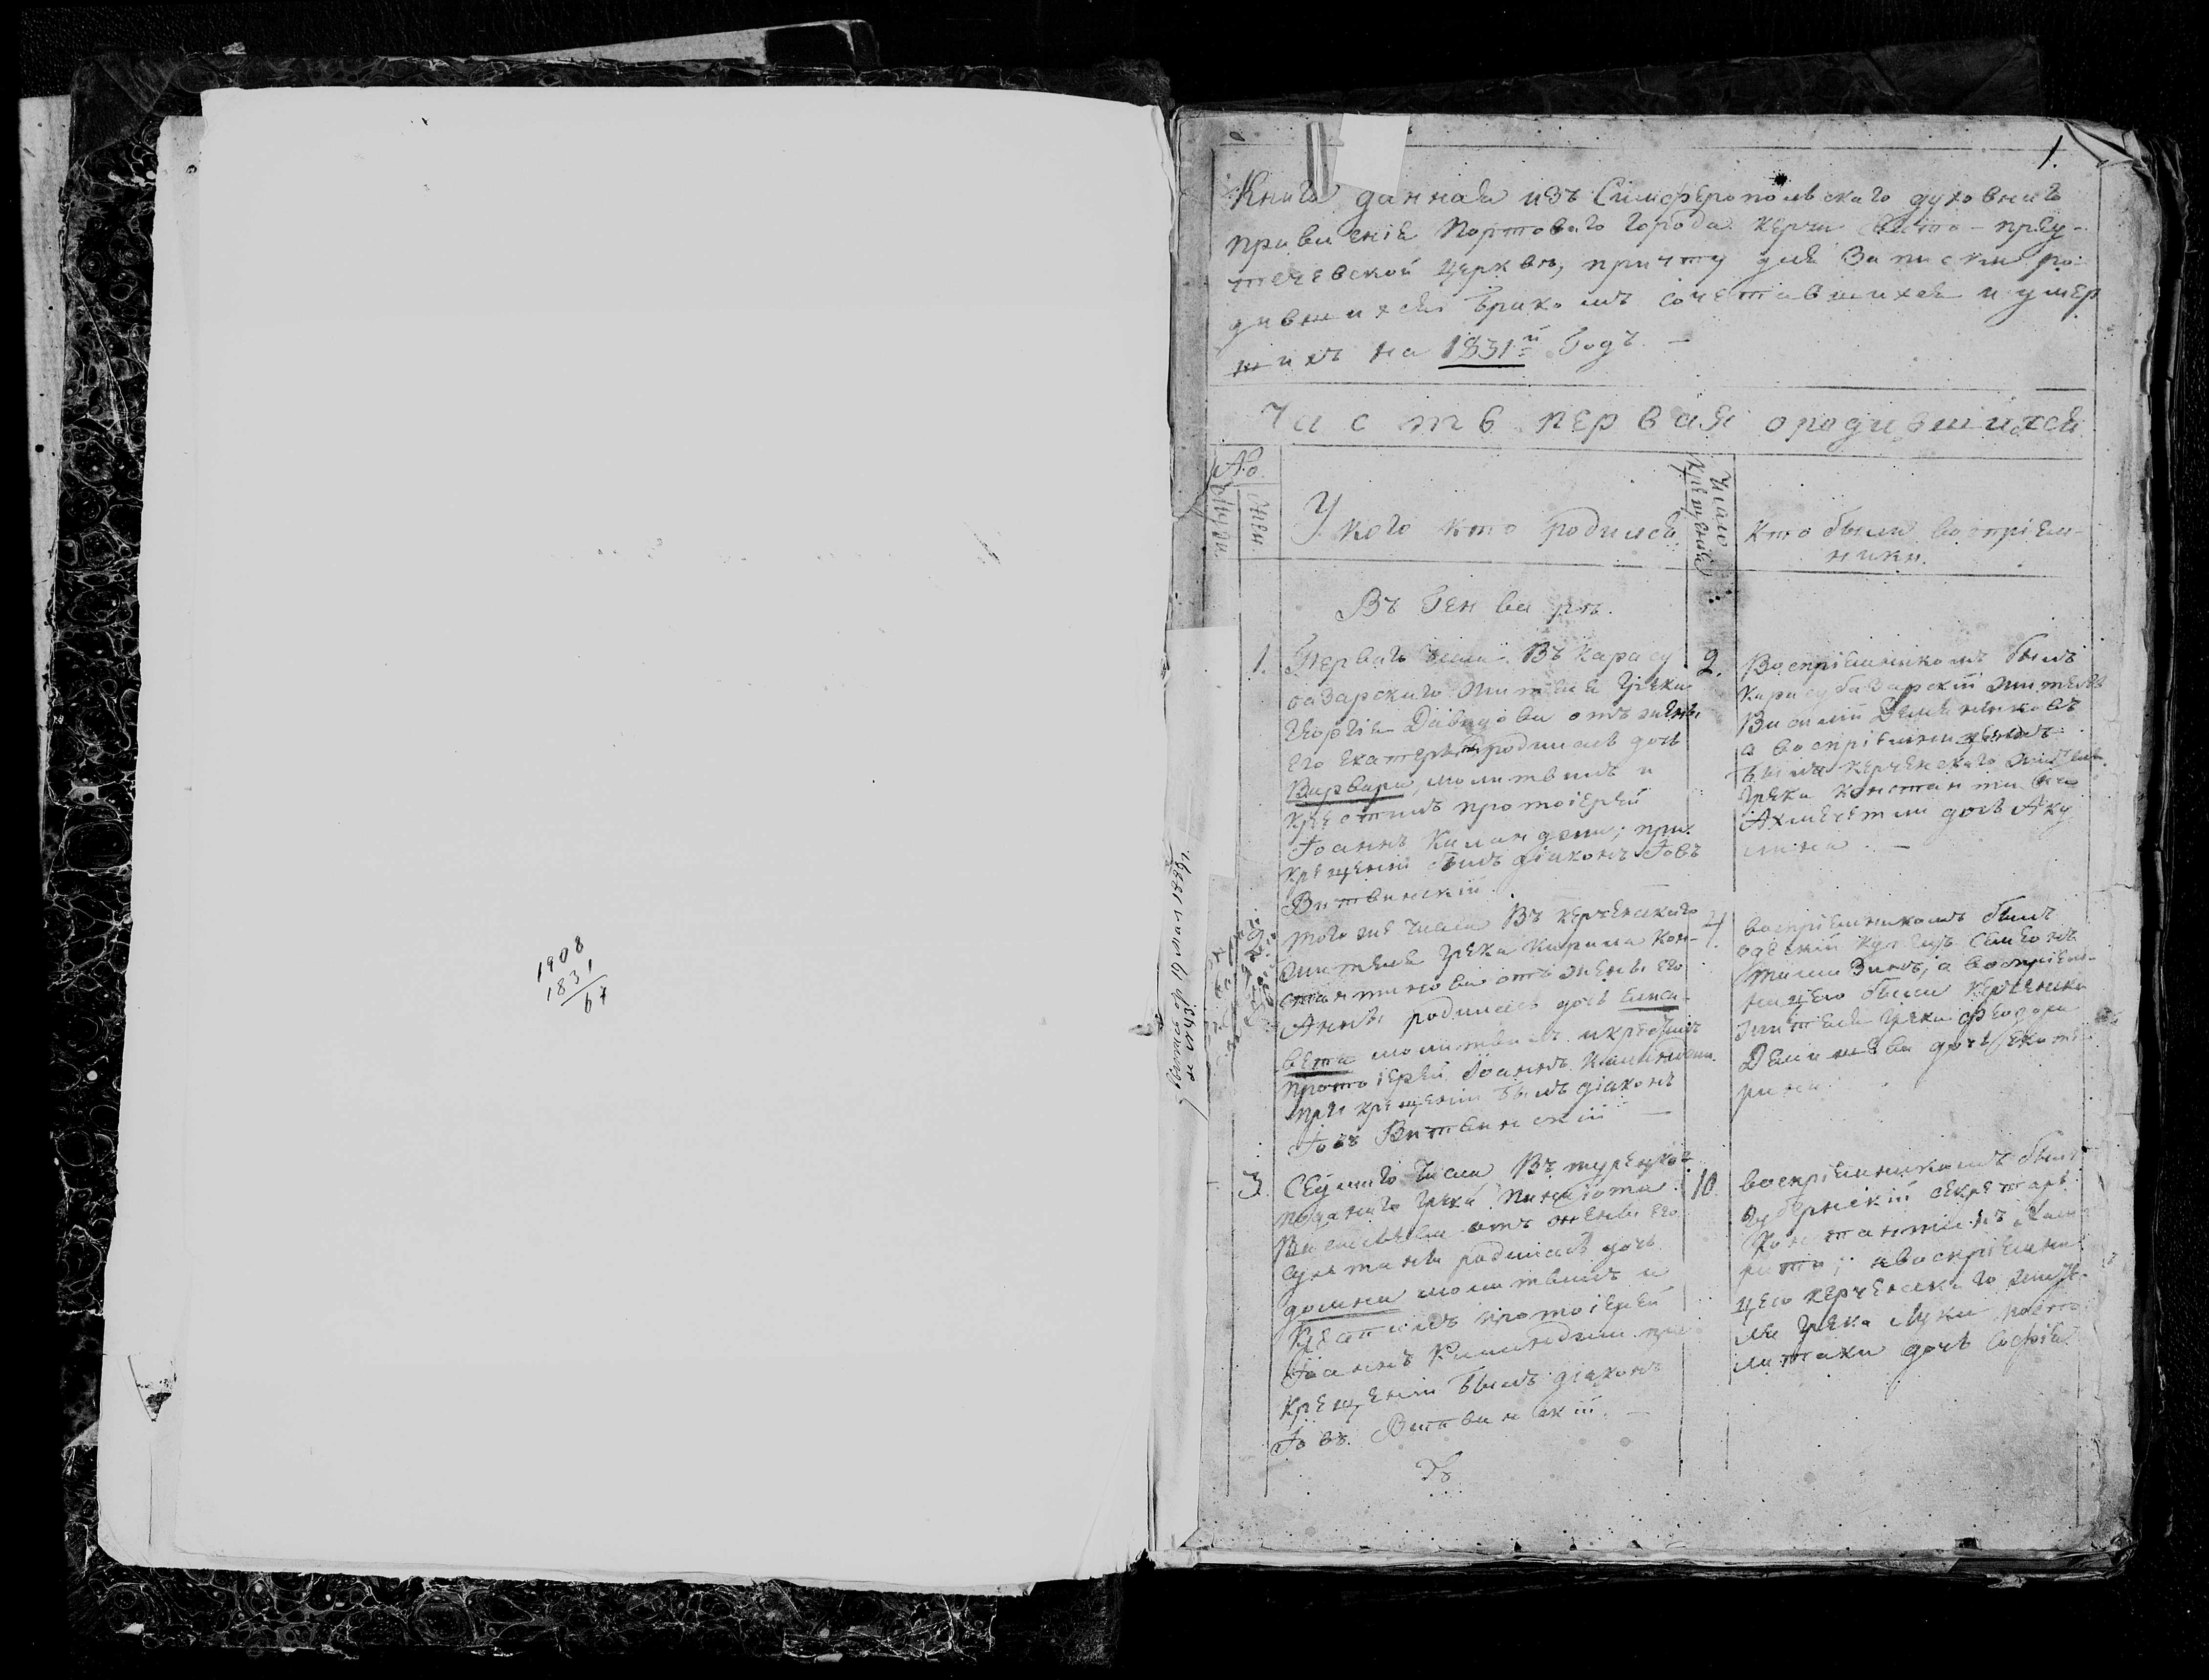 1908
1831
67
1.
Книга данная изъ Симферопольскаго духовнаго
правленія Портоваго города Керчи Свято-преду-
течевской церквѣ, причту для Записки ро-
дившихся бракомъ сочетавшихся и умер
шихъ на 1831й Годъ. —
Часть первая о родившихся
№
Муж.
Жен.
У кого кто родился
Число
крещенія
Кто были воспріем-
ники.
Въ Генварѣ.
1. Перваго числа Въ Карасу
базарскаго жителя Грека
Георгія Давидова отъ жены
его Екатерины родилась дочь
Варвара, молитвилъ и
крестилъ протоіерей
Іоаннъ Киланджи; при
крещеніи былъ діаконъ Іовъ
Витвинскій.
2.
Воспріемникомъ былъ
Карасубазарскій житель
Василій
а воспріемницею
была керченскаго жителя
Грека Константина
Ахмечетли дочь Аку
лина. —
того же числа Въ керченскаго
жителя Грека Кирила Кон-
стантинова отъ жены его
Анны родилась дочь Елиса-
вета молитвилъ и крестилъ
протоіерей Іоаннъ Киланджи.
при крещеніи былъ діаконъ
Іовъ Витвинскій —
4.
воспріемникомъ былъ
одескій купецъ Семеонъ
а воспріем-
ницею была керченска
жителя Грека Феодора
дочь Екате
рина.
3. Седмаго числа Въ турецко-
поданаго Грека Панаіота
Васильева отъ жены его
Султаны родилась дочь
домна молитвилъ и
крестилъ протоіерей
Іоаннъ Киланджи при
крещеніи былъ діаконъ
Іовъ Витвинскій. —
10
воспріемникомъ былъ
Губернскій секретарь
Константинъ
а воспріемни
цею керченскаго жите-
ля Грека Луки
дочь Софія